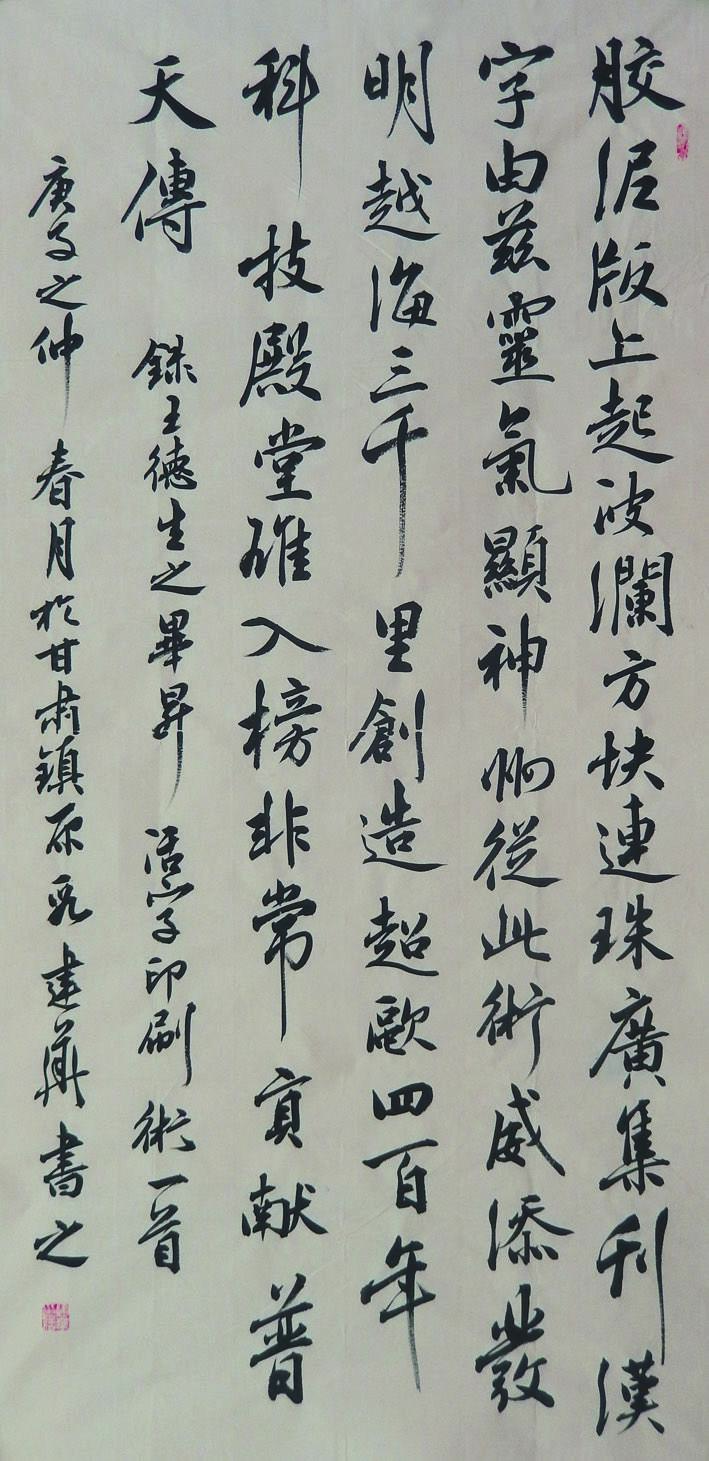 胶泥版上起波瀾方块連珠廣集刊漢
字由茲靈氣顯神州從此術威添發
明越海三千里創造超歐四百年
科技殿堂雄入榜非常貢献普
天傳 録王德生之畢昇活字印刷術一首
庚子之仲春月於甘肅鎮原建華書之